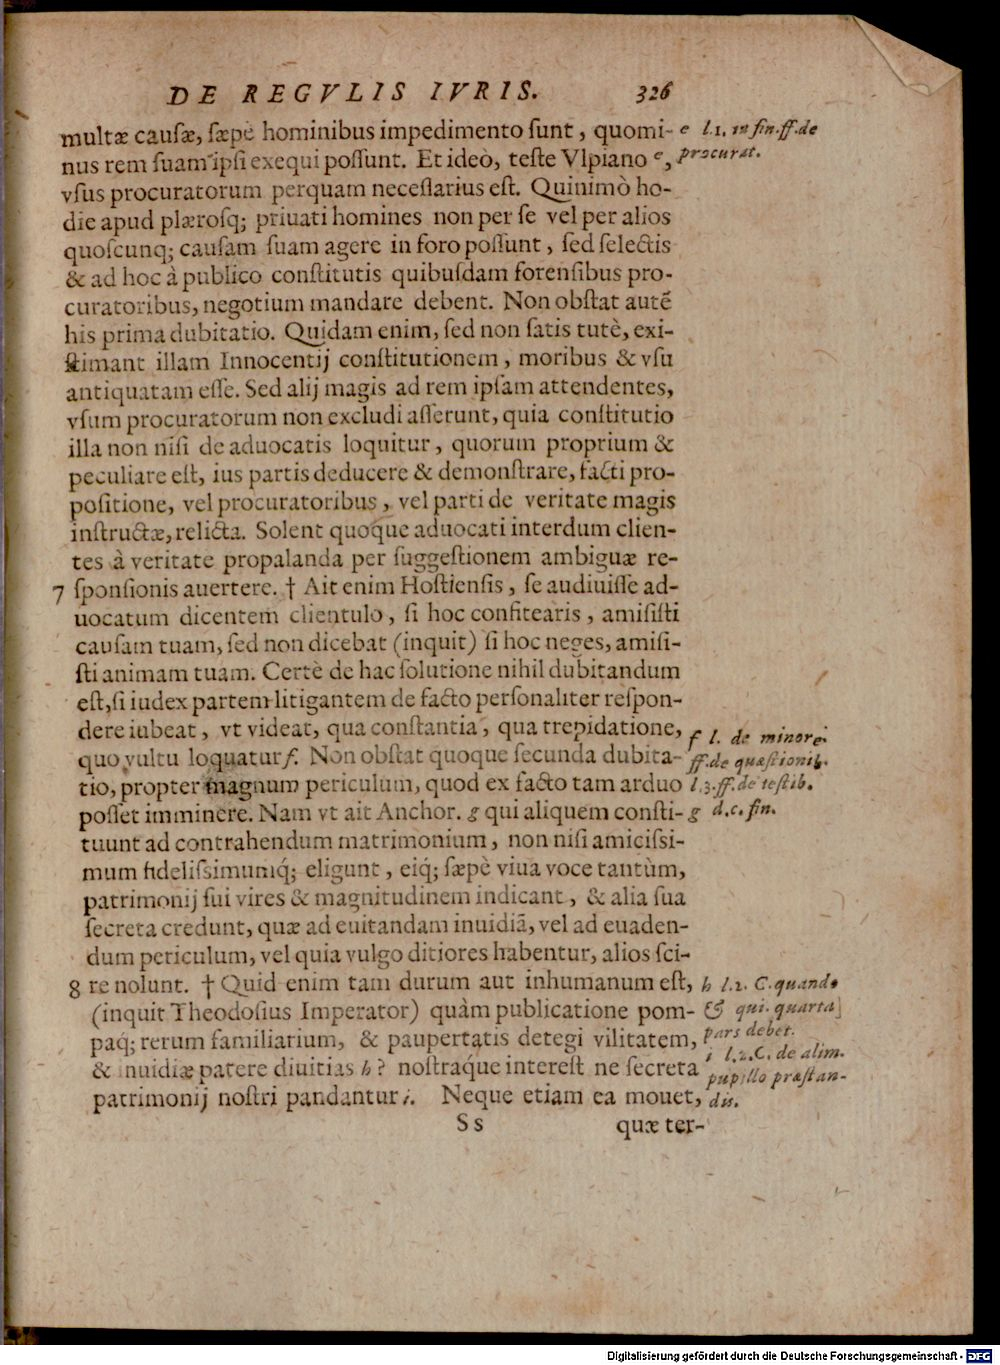 DE REGVLIS IVRIS. 326
multæ cauſæ, ſæpè hominibus impedimento ſunt, quomi-
nus rem ſuam ipſi exequi poſſunt. Et ideò, teſte Vlpiano e,
vſus procuratorum perquam neceſſarius eſt. Quinimò ho-
die apud plæroſq; priuati homines non per ſe vel per alios
quoſcunq; cauſam ſuam agere in foro poſſunt, ſed ſelectis
& ad hoc à publico conſtitutis quibuſdam forenſibus pro-
curatoribus, negotium mandare debent. Non obſtat autẽ
his prima dubitatio. Quidam enim, ſed non ſatis tutè, exi-
ſtimant illam Innocentij conſtitutionem, moribus & vſu
antiquatam eſſe. Sed alij magis ad rem ipſam attendentes,
vſum procuratorum non excludi aſſerunt, quia conſtitutio
illa non niſi de aduocatis loquitur, quorum proprium &
peculiare eſt, ius partis deducere & demonſtrare, facti pro-
poſitione, vel procuratoribus, vel parti de veritate magis
inſtructæ, relicta. Solent quoque aduocati interdum clien-
tes à veritate propalanda per ſuggeſtionem ambiguæ re-
7 ſponſionis auertere. † Ait enim Hoſtienſis, ſe audiuiſſe ad-
uocatum dicentem clientulo, ſi hoc confitearis, amiſiſti
cauſam tuam, ſed non dicebat (inquit) ſi hoc neges, amiſi-
ſti animam tuam. Certè de hac ſolutione nihil dubitandum
eſt, ſi iudex partem litigantem de facto perſonaliter reſpon-
dere iubeat, vt videat, qua conſtantia, qua trepidatione,
quo vultu loquatur f. Non obſtat quoque ſecunda dubita-
tio, propter magnum periculum, quod ex facto tam arduo
poſſet imminere. Nam vt ait Anchor. g qui aliquem conſti-
tuunt ad contrahendum matrimonium, non niſi amiciſſi-
mum fideliſſimumq́; eligunt, eiq́; ſæpè viua voce tantùm,
patrimonij ſui vires & magnitudinem indicant, & alia ſua
ſecreta credunt, quæ ad euitandam inuidiã, vel ad euaden-
dum periculum, vel quia vulgo ditiores habentur, alios ſci-
8 re nolunt. † Quid enim tam durum aut inhumanum eſt,
(inquit Theodoſius Imperator) quàm publicatione pom-
paq́; rerum familiarium, & paupertatis detegi vilitatem,
& inuidiæ patere diuitias h? noſtraq́ue intereſt ne ſecreta
patrimonij noſtri pandantur i. Neque etiam ea mouet,
S s quæ ter-
e l.1. in fin. ff. de
procurat.
f l. de minore.
ff. de quæſtionib.
l.3. ff. de teſtib.
g d.c. fin.
h l.2. C. quando
& qui. quarta
pars debet.
i l.2. C. de alim.
pupillo præſtan-
dis.
Digitalisierung gefördert durch die Deutsche Forschungsgemeinschaft - DFG